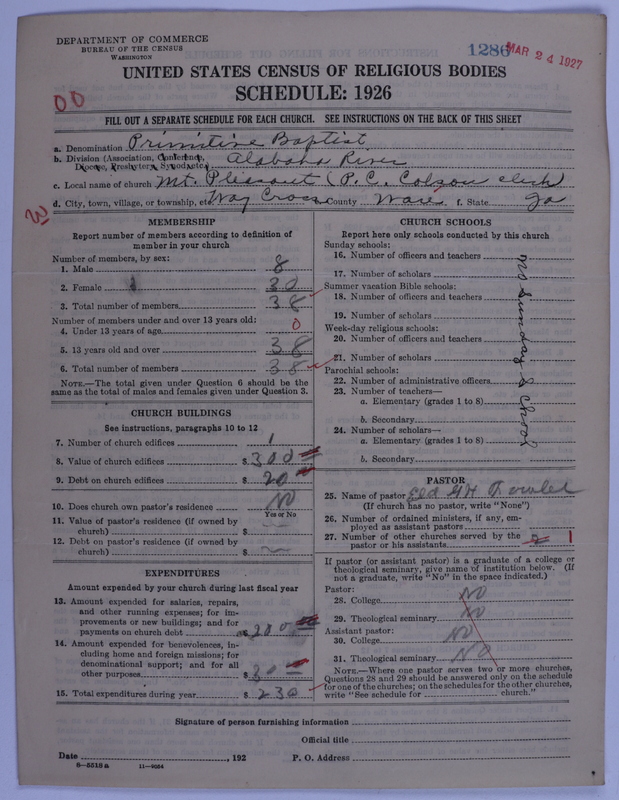 DEPARTMENT OF COMMERCE
BUREAU OF THE CENSUS
WASHINGTON
1286 MAR 24 1927
UNITED STATES CENSUS OF RELIGIOUS BODIES
SCHEDULE: 1926
00
FILL OUT A SEPARATE SCHEDULE FOR EACH CHURCH. SEE INSTRUCTIONS ON THE BACK OF THIS SHEET
a. Denomination Primitive Baptist
b. Division (Association, Conference, Alabaha River
Diocese, Presbytery, Synod, etc.)
c. Local name of church Mt. Pleasant (P. C. Colson clerk)
d. City, town, village, or township, etc. Way Cross County Ware f. State Ga
MEMBERSHIP
Report number of members according to definition of
member in your church
Number of members, by sex:
1. Male 8
2. Female 30
3. Total number of members 38
Number of members under and over 13 years old:
4. Under 13 years of age 0
5. 13 years old and over 38
6. Total number of members 38
NOTE.—The total given under Question 6 should be the
same as the total of males and females given under Question 3.
CHURCH BUILDINGS
See instructions, paragraphs 10 to 12
7. Number of church edifices 1
8. Value of church edifices $ 300
9. Debt on church edifices $ 20
10. Does church own pastor's residence NO
Yes or No
11. Value of pastor's residence (if owned by
church) $
12. Debt on pastor's residence (if owned by
church) $
EXPENDITURES
Amount expended by your church during last fiscal year
13. Amount expended for salaries, repairs,
and other running expenses; for im-
provements or new buildings; and for
payments on church debt $ 200
14. Amount expended for benevolences, in-
cluding home and foreign missions; for
denominational support; and for all
other purposes $ 30
15. Total expenditures during year $ 230
CHURCH SCHOOLS
Report here only schools conducted by this church
Sunday schools:
16. Number of officers and teachers
17. Number of scholars
Summer vacation Bible schools:
18. Number of officers and teachers
19. Number of scholars
Week-day religious schools:
20. Number of officers and teachers
21. Number of scholars
Parochial schools:
22. Number of administrative officers
23. Number of teachers—
a. Elementary (grades 1 to 8)
b. Secondary
24. Number of scholars—
a. Elementary (grades 1 to 8)
b. Secondary
no Sunday School
PASTOR
25. Name of pastor Eld
(If church has no pastor, write "None")
26. Number of ordained ministers, if any, em-
ployed as assistant pastors
27. Number of other churches served by the 2 1
pastor or his assistants
If pastor (or assistant pastor) is a graduate of a college or
theological seminary, give name of institution below. (If
not a graduate, write "No" in the space indicated.)
Pastor:
28. College NO
29. Theological seminary NO
Assistant pastor:
30. College NO
31. Theological seminary NO
NOTE.—Where one pastor serves two or more churches,
Questions 28 and 29 should be answered only on the schedule
for one of the churches; on the schedules for the other churches,
write "See schedule for church."
Signature of person furnishing information
Official title
Date , 192 P. O. Address
8—5518 a 11—9024